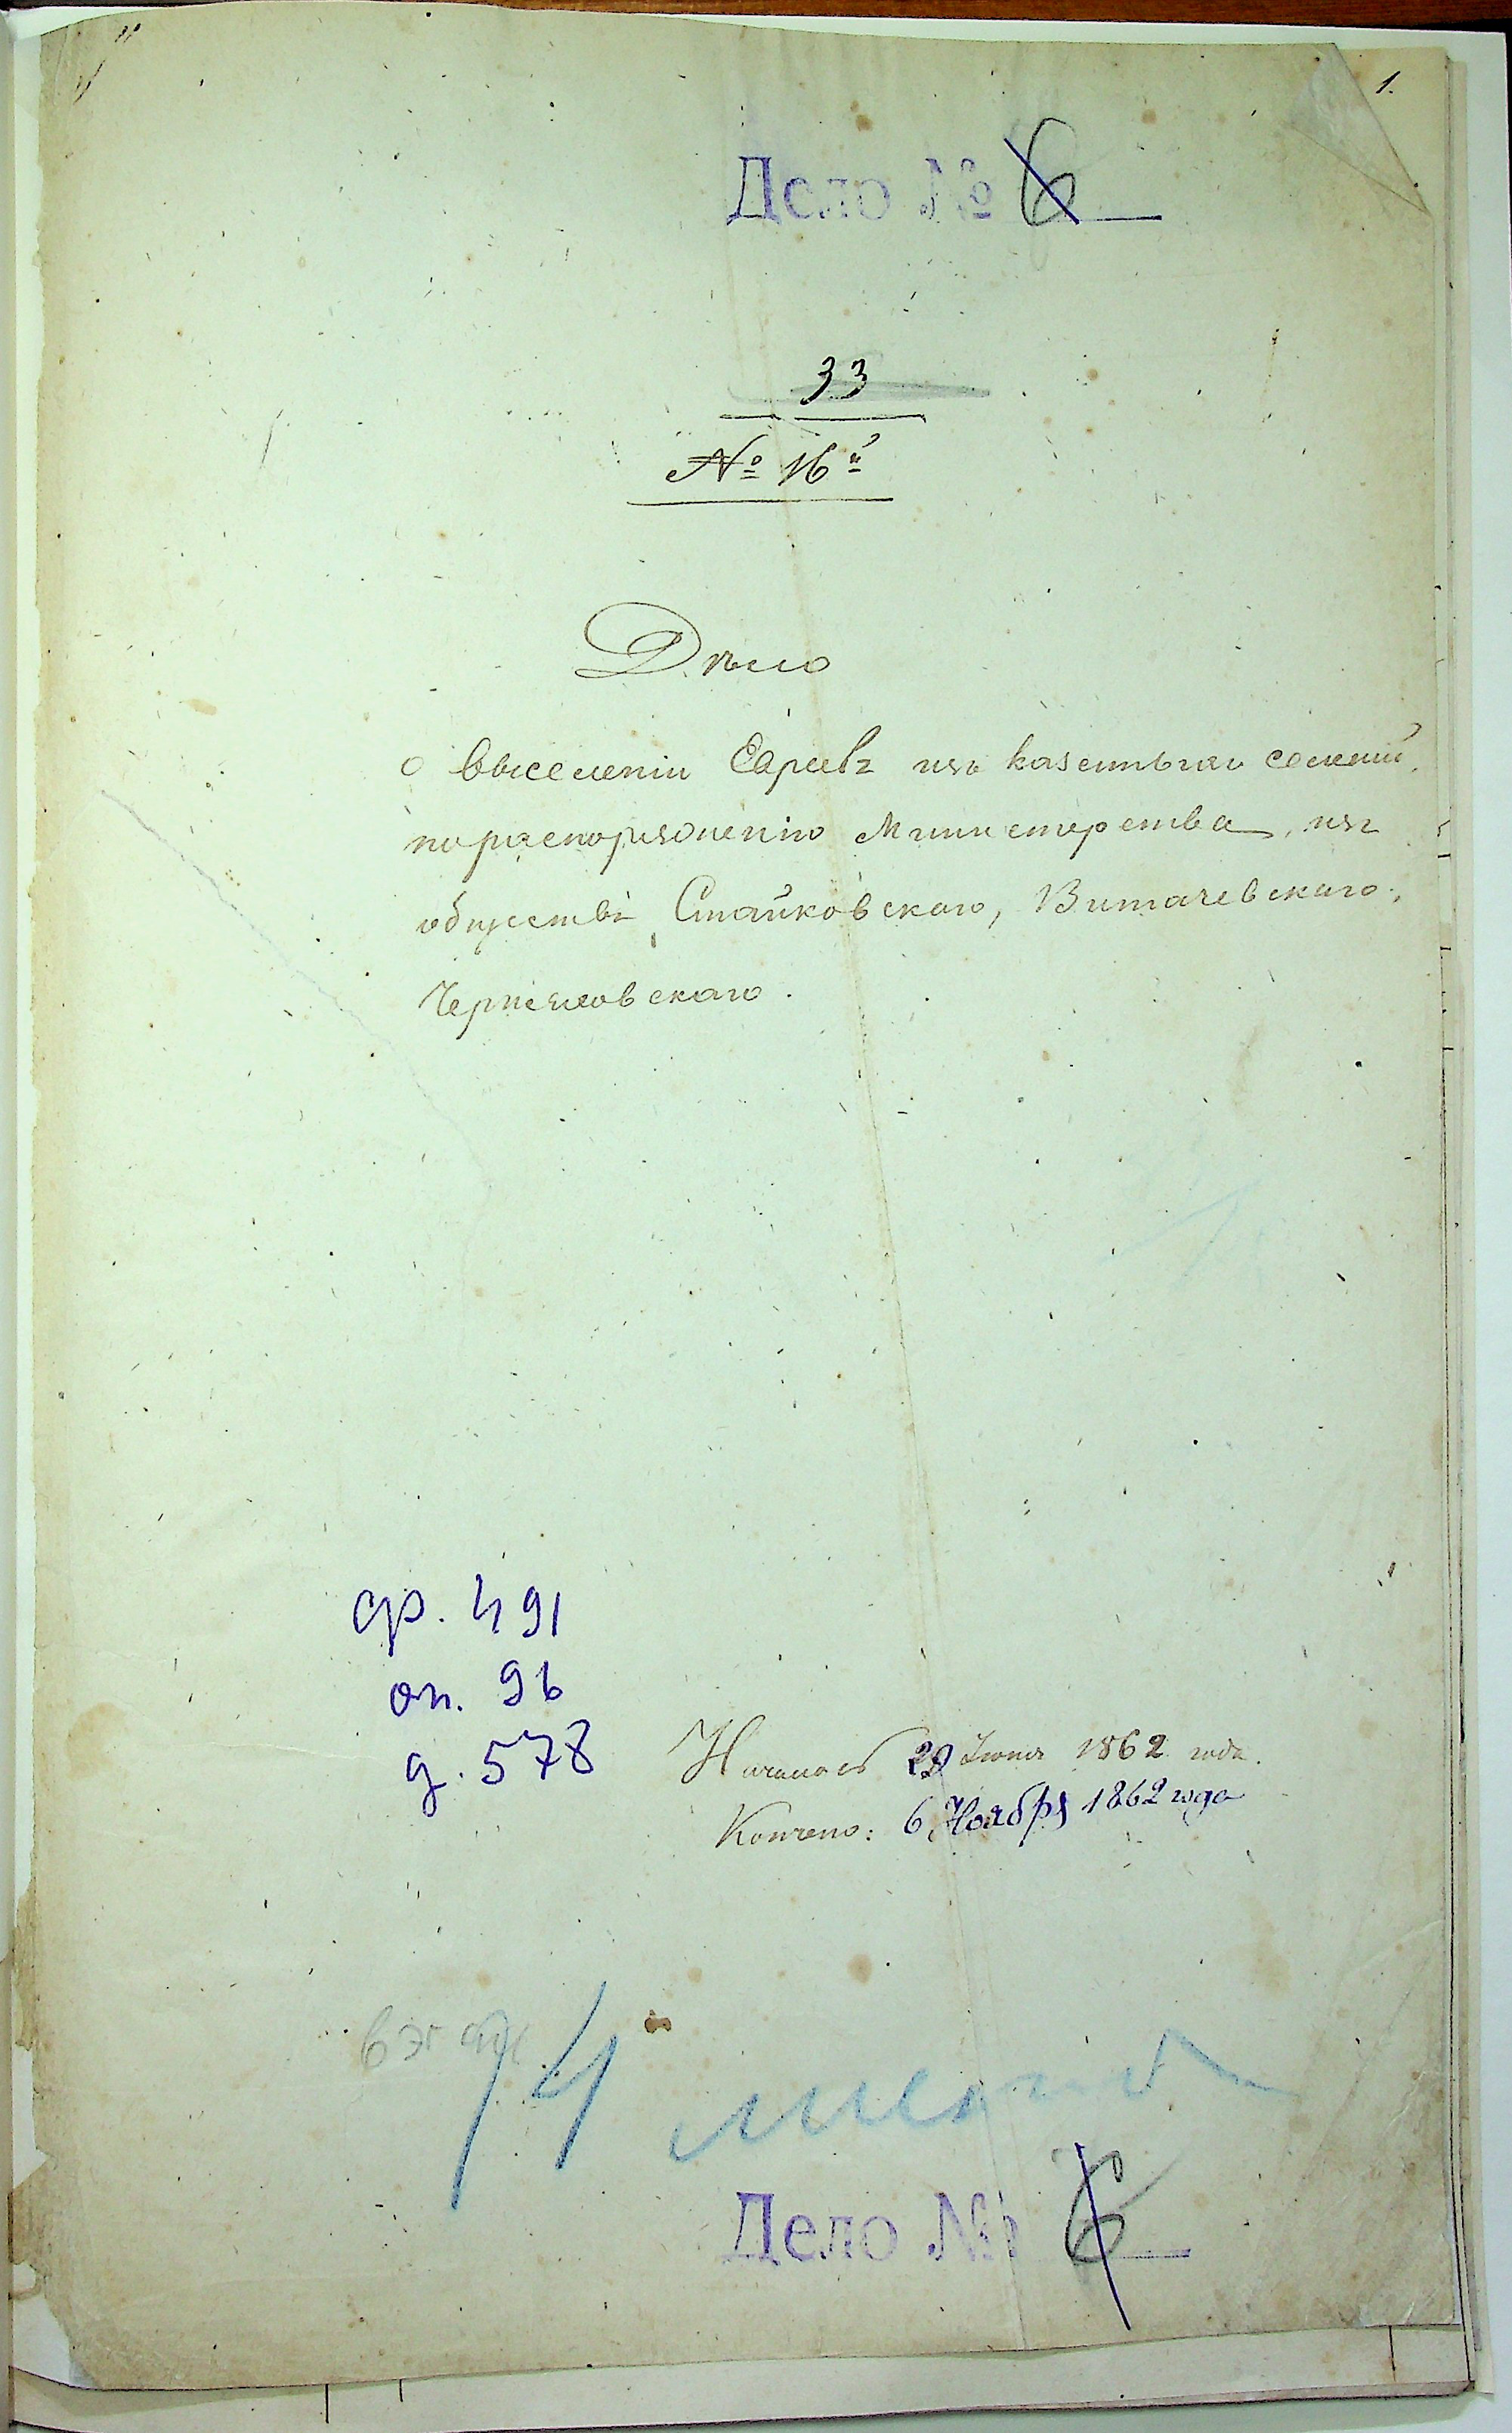 1.
Дело № 6
33
№ 16й
Дѣло
о выселеніи Евреевъ изъ казенныхъ селеній,
по распоряженію Министерства, изъ
обществъ Стайковскаго, Витачевскаго,
Черняховскаго.
ф. 491
оп. 96
д. 578
Началось 29 Іюня 1862 года.
Кончено: 6 Ноября 1862 года
14 листов
Дело № 6